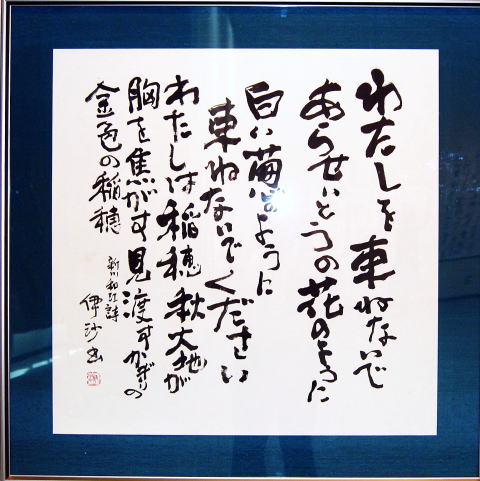 わたしを束ねないで
あらせいとうの花のように
白い葱のように
束ねないでください
わたしは稲穂 秋 大地が
胸を焦がす見渡すかぎりの
金色の稲穂
新川和江詩
伊沙書